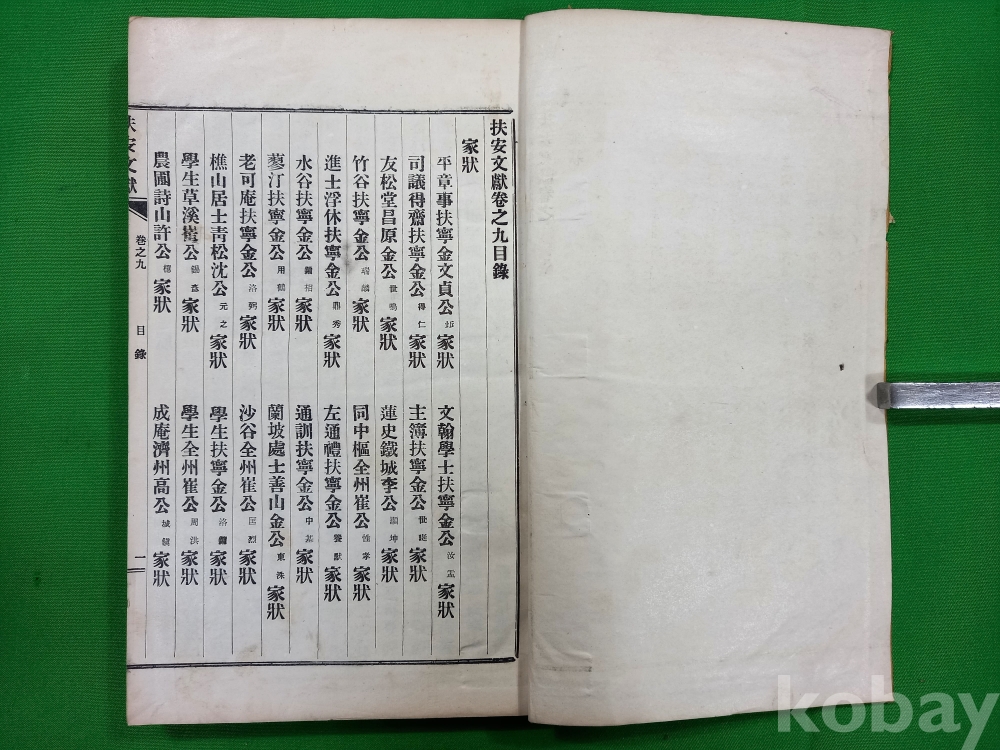 扶安文獻卷之九目錄
家狀
平章事扶寧金文貞公 家狀
文翰學士扶寧金公 汝盂 家狀
司議得齋扶寧金公 得仁 家狀
主簿扶寧金公 世 家狀
友松堂昌原金公 世鳴 家狀
蓮史鐵城李公 坤 家狀
竹谷扶寧金公 瑞麟 家狀
同中樞全州崔公 孝 家狀
進士浮休扶寧金公 鼎秀 家狀
左通禮扶寧金公 獸 家狀
水谷扶寧金公 相 家狀
通訓扶寧金公 中 家狀
蓼汀扶寧金公 用鶴 家狀
蘭坡處士善山金公 東洙 家狀
老可庵扶寧金公 洛弼 家狀
沙谷全州崔公 匡烈 家狀
樵山居士靑松沈公 元之 家狀
學生扶寧金公 洛 家狀
學生草溪公 錫 家狀
學生全州崔公 周洪 家狀
農圃詩山許公 家狀
成庵濟州高公 城鎭 家狀
扶安文獻
卷之九
目錄
一
kobay